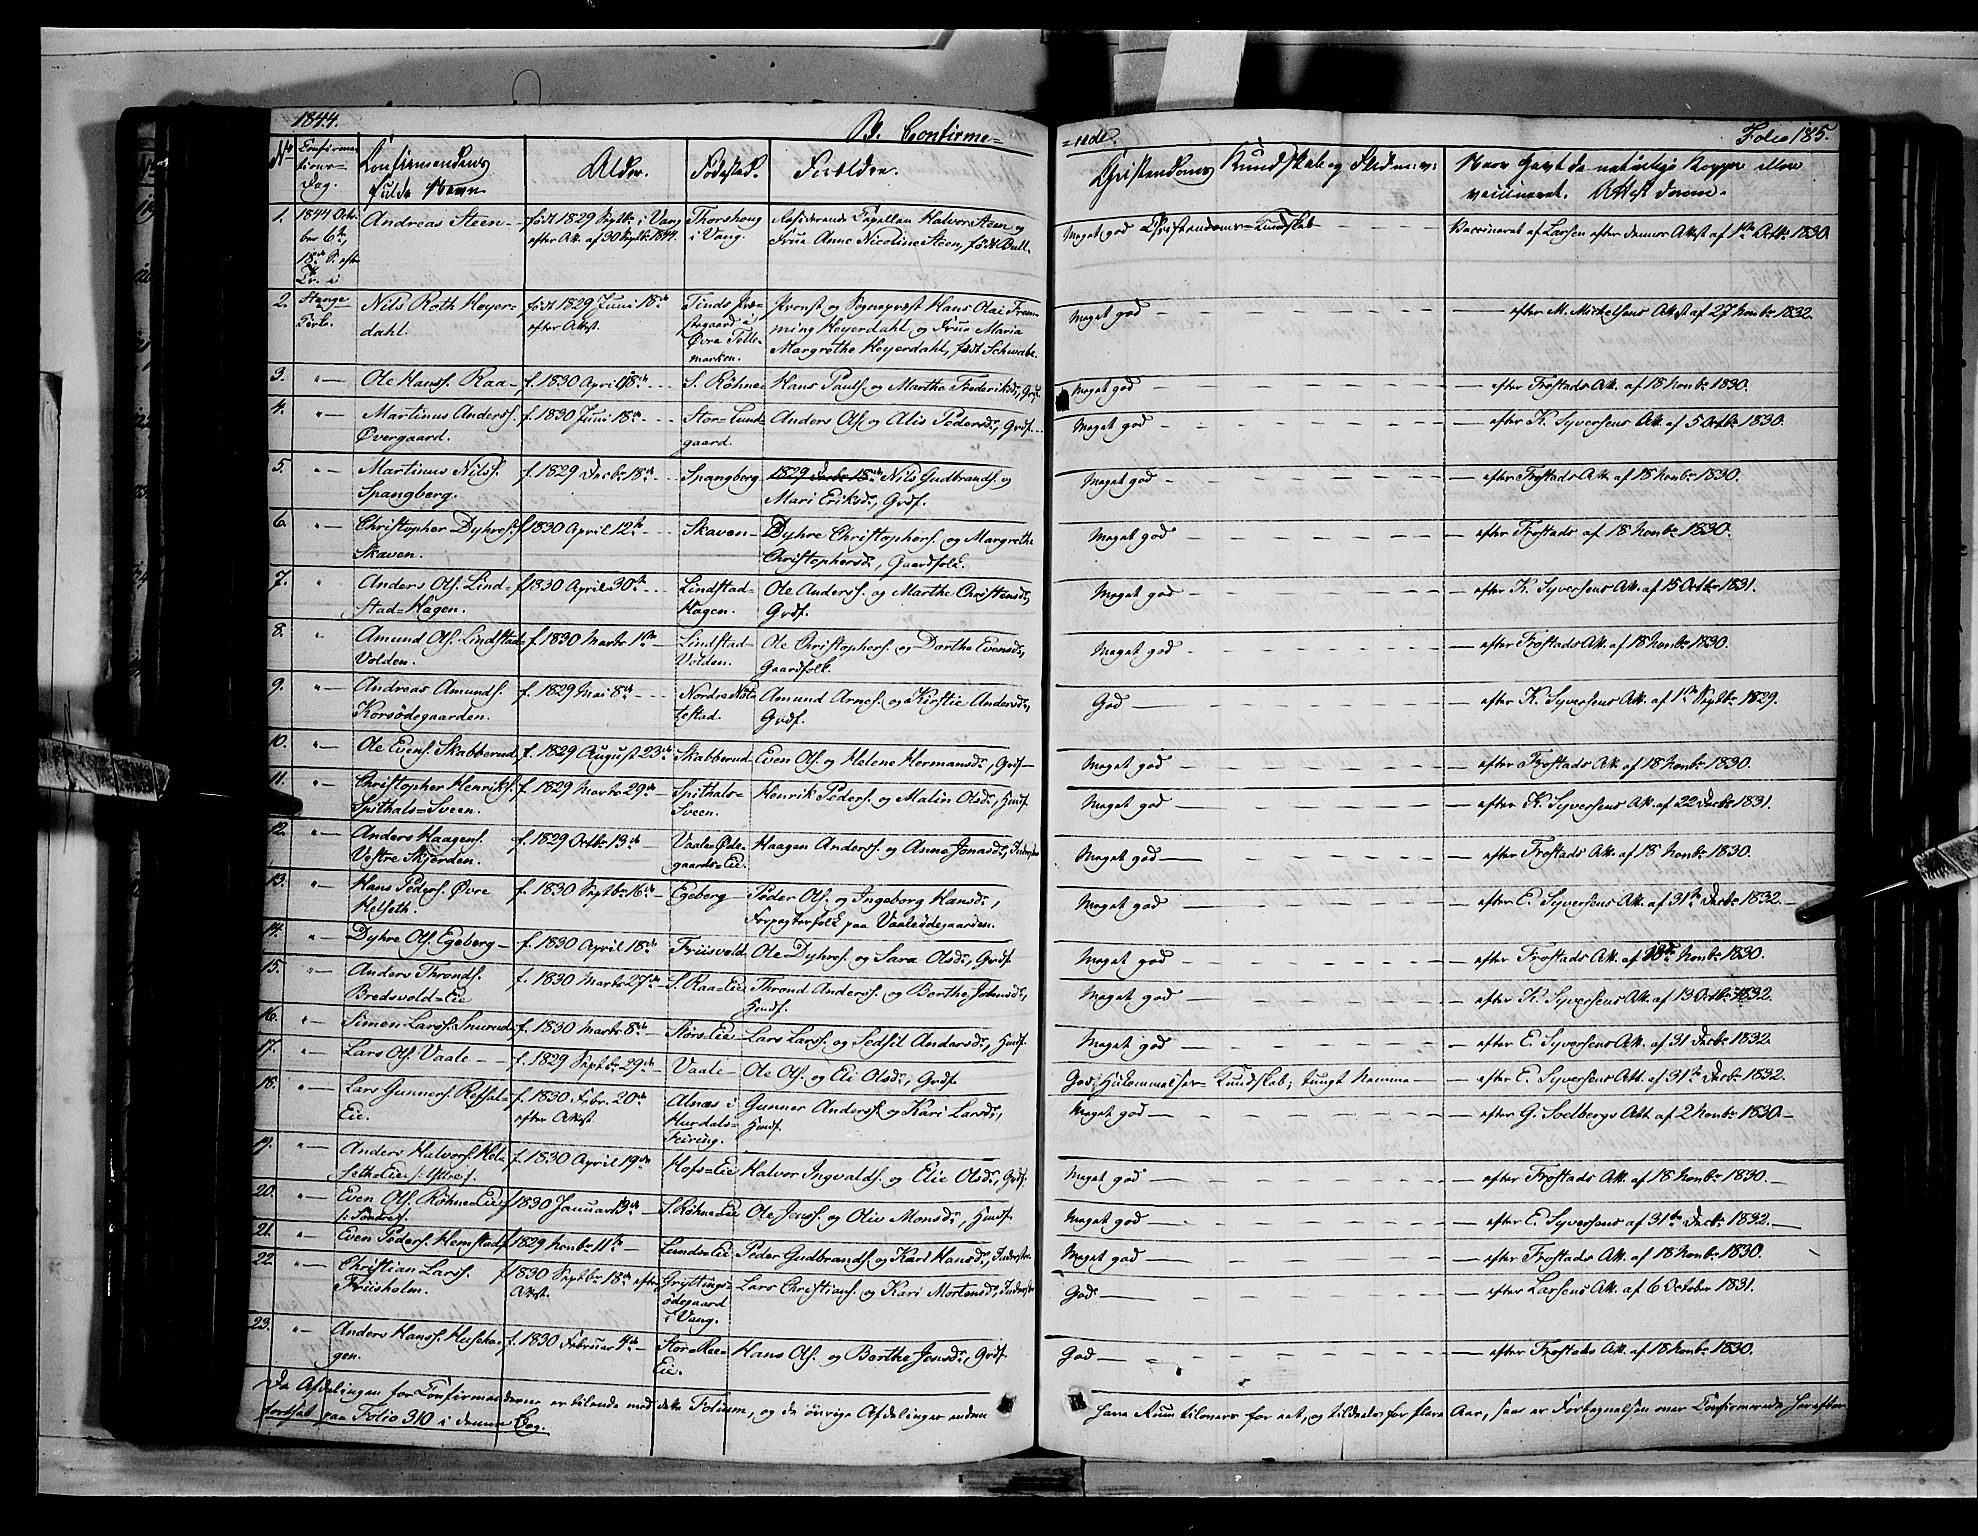 1844. B. Confirme= =rede. Folio 185.
No Confirma=tions=Dag. Confirmandens fulde Navn Alder. Fødested. Forældre. Christendoms Kundskab og Flid m. v: Naar havt de naturlige Kopper eller vaccineret. Attest derom.
1. 1844 October 6te, 18de S. efter Tr. i Andreas Steen født 1829 Septbr i Vang efter Att. af 30 Septbr 1844. Thorshoug i Vang. Residerende Capellan Halvor Steen og Frue Anne Nicoline Steen, født Bull. Meget god Christendoms=Kundskab Vaccineret af Larsen efter dennes Attest af 1ste Octbr 1830.
Stange Kirke.
2. Nils Roth Heyerdahl. født 1829 Juni 18de efter Attest. Tinds Præstegaard i Øvre Tellemarken. Provst og Sognepræst Hans Olai Fremming Heyerdahl og Frue Maria Margrethe Heyerdahl, født Schwabe. Meget god — efter M. Michelsens Attest af 27 Novbr 1832.
3. "— Ole Hanss. Raa f. 1830 April 18de S. Røhne Hans Pauls. og Marthe Frederiksd., Grdf. Meget god — efter Frostads Att. af 18 Novbr 1830.
4. "— Martinus Anderss. Øvergaard. f. 1830 Juni 18de Stor=Lundgaard. Anders Ols. og Alis Pedersd., Grdf. Meget god — efter K. Syversens Att. af 5 Octbr 1830.
5. "— Martinus Nilss. Spangberg. f. 1829 Decbr 18de Spangberg 1829 Decbr 18de Nils Gudbrands. og Mari Eriksd., Grdf. Meget god — efter Frostads Att. af 18 Novbr 1830.
6. "— Christopher Dyhres. Skaven. f. 1830 April 12te Skaven Dyhre Christophers. og Margrethe Christophersd., Gaardfolk. Meget god — efter Frostads af 18 Novbr 1830.
7. " Anders Ols. Lindstad=Hagen. f. 1830 April 30te Lindstad=Hagen. Ole Anderss. og Marthe Christensd., Grdf. Meget god — efter K. Syversens Att. af 15 Octbr 1831.
8. " Amund Ols. Lindstad=Volden. f. 1830 Marts 1ste Lindstad=Volden. Ole Christophers. og Dorthe Evensd., Gaardfolk. Meget god — efter Frostads Att. af 18 Novbr 1830.
9. "— Andreas Amunds. Korsødegaarden. f. 1829 Mai 8de Nordre Nistestad. Amund Arnes. og Kirstie Andersd., Grdf. God — efter K. Syversens Att. af 1ste Septbr 1829.
10. "— Ole Evens. Skabberud f. 1829 August 23de Skabberud Even Ols. og Helene Hermansd., Grdf. Meget god — efter Frostads Att. af 18 Novbr 1830.
11. "— Christopher Henriks. Spithals=Sveen. f. 1829 Marts 29de Spithals=Sveen. Henrik Peders. og Malin Olsd., Husf. Meget god — efter K. Syversens Att. af 22 Decbr 1831.
12. "— Anders Haagens. Vestre Skjerden. f. 1829 Octbr 13de Vaale=Ødegaards=Eie. Haagen Anderss. og Anne Jonasd., Inderster Meget god — efter Frostads Att. af 18 Novbr 1830.
13. "— Hans Peders. Øvre Helseth. f. 1830 Septbr 16de Egeberg Peder Ols. og Ingeborg Hansd., Forpagterfolk paa Vaaleødegaarden. Meget god — efter E. Syversens Att. af 31te Decbr 1832.
14. "— Dyhre Ols. Egeberg f. 1830 April 18de Friisvold Ole Dyhres. og Sara Olsd., Grdf. Meget god — efter Frostads Att. af 18de Novbr 1830.
15. "— Anders Thronds. Bredsvold=Eie f. 1830 Marts 27de S. Raa=Eie Thrond Anderss. og Berthe Johnsd., Husf. Meget god — efter K. Syversens Att. af 13 Octbr 1832.
16. "— Simen Larss. Snurud f. 1830 Marts 8de Størs=Eie Lars Larss. og Sedsil Andersd., Husf. Meget god — efter E. Syversens Att. af 31 Decbr 1832.
17. "— Lars Ols. Vaale f. 1829 Septbr 29de Vaale Ole Ols. og Eli Olsd., Grdf. God Hukommelses=Kundskab; tungt Nemme — efter E. Syversens Att. af 31te Decbr 1832.
18. "— Lars Gunners. Refsal=Eie. f. 1830 Febr. 20de efter Attest Alnæs i Hurdals=Feiring. Gunner Anderss. og Kari Larsd., Husf. Meget god — efter G. Soelbergs Att. af 2 Novbr 1830.
19. "— Anders Halvors. Helseth=Eie /: Yttre f. f. 1830 April 19de Hofs=Eie Halvor Ingvalds. og Elie Olsd., Grdf. Meget god — efter Frostads Att. af 18 Novbr 1830.
20. "— Even Ols. Røhne=Eie /: Søndre f. f. 1830 Januar 19de S. Røhne=Eie Ole Jenss. og Oliv Monsd., Husf. Meget god — efter E. Syversens af 31te Decbr 1832.
21. "— Even Peders. Hemstad f. 1829 Novbr 11te Lunds=Eie Peder Gudbrands. og Kari Hansd., Inderster Meget god — efter Frostads Att. af 18 Novbr 1830.
22. "— Christian Larss. Friisholm. f. 1830 Septbr 18de efter Attest. Gryttings=ødegaard i Vang. Lars Christians. og Kari Mortensd., Inderster God — efter Larsens Att. af 6 October 1831.
23. "— Anders Hanss. Husehagen. f. 1830 Februar 4de Stor=Ree=Eie. Hans Ols. og Berthe Jonsd., Grdf. God — efter Frostads Att. af 18 Novbr 1830.
Da Afdelingen for Confirmanderne er tilende med dette Folium, og da øvrige Afdelinger endnu have Rum tilovers for eet, og tildeels for flere Aar, saa er Fortegnelsen over Confirmerede herefter
fortsat paa Folio 310 i denne Bog.